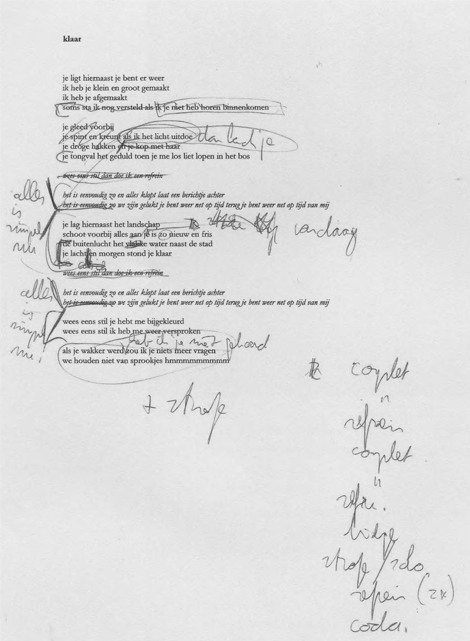 klaar
je ligt hiernaast je bent er weer
ik heb je klein en groot gemaakt
ik heb je afgemaakt
soms sta ik nog versteld als ik je niet heb horen binnenkomen
je gleed voorbij
je spint en kreunt als ik het licht uitdoe
je droge hakken je kop met haar
je tongval het geduld toen je me los liet lopen in het bos
wees eens stil dan doe ik een refrein
alles is simpel nu
het is eenvoudig zo en alles klopt laat een berichtje achter
het is eenvoudig zo we zijn gelukt je bent weer net op tijd terug je bent weer net op tijd van mij
je lag hiernaast het landschap
vandaag
schoot voorbij alles aan je is zo nieuw en fris
buitenlucht het water naast de stad
je lachte morgen stond je klaar
wees eens stil dan doe ik een refrein
alles is simpel nu!
het is eenvoudig zo en alles klopt laat een berichtje achter
het is eenvoudig zo we zijn gelukt je bent weer net op tijd terug je bent weer net op tijd van mij
wees eens stil je hebt me bijgekleurd
wees eens stil ik heb me weer versproken
heb ik je niet gehoord
als je wakker werd zou ik je niets meer vragen
we houden niet van sprookjes hmmmmmmmmmm
+ strofe
couplet
"
refrein
couplet
"
refr.
bridge
strofe / solo
refrein (2x)
coda.